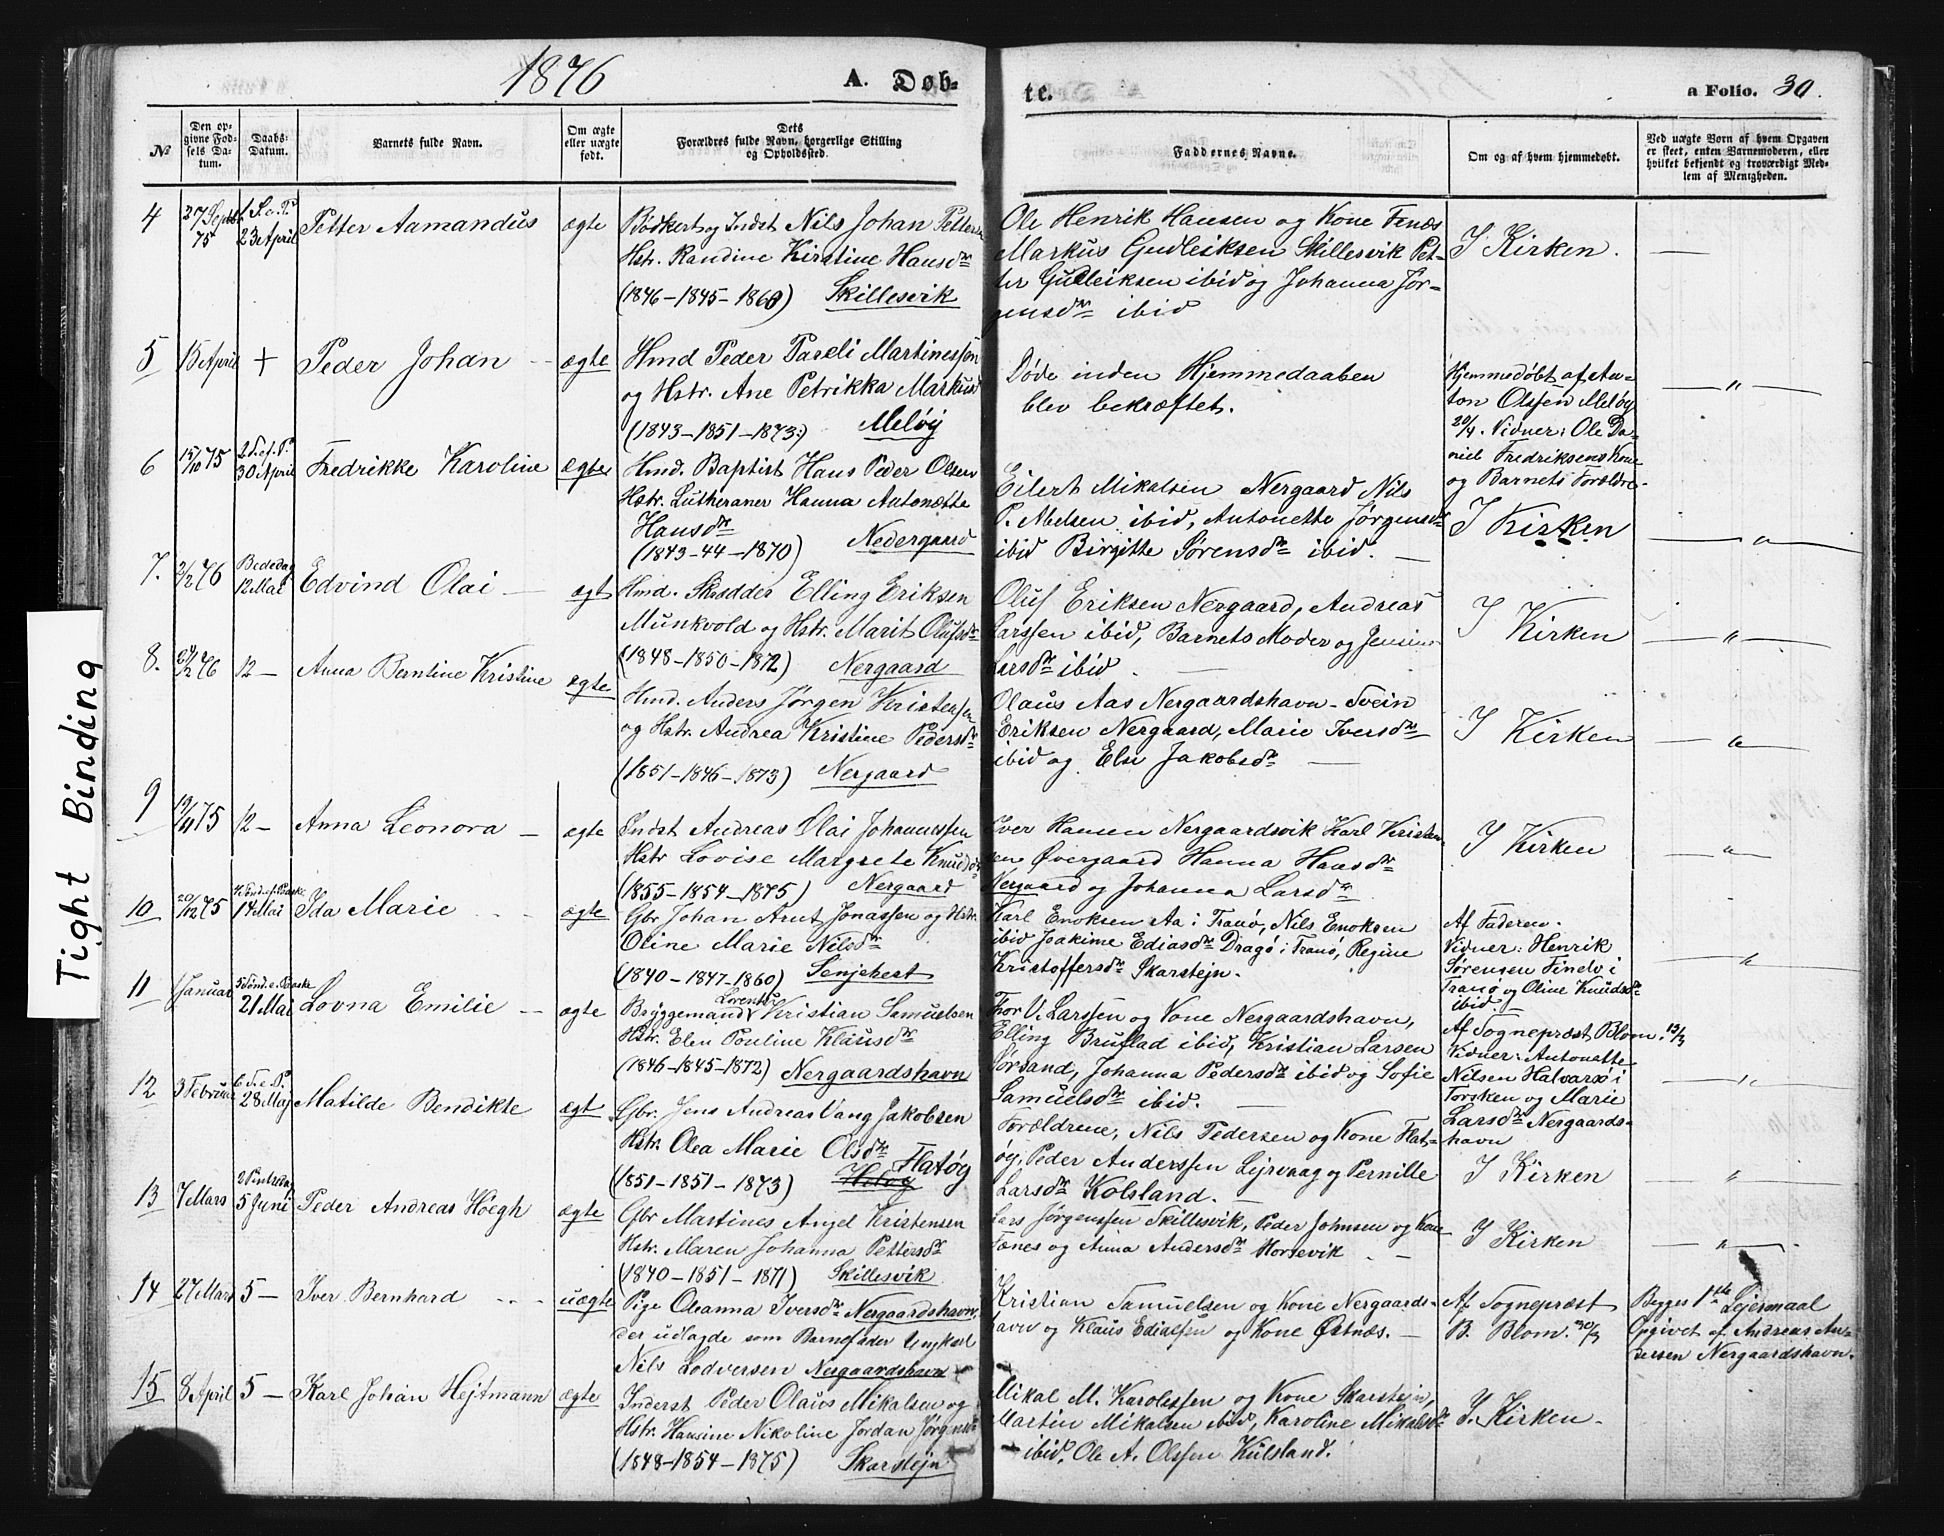 1876
A. Døb-
te.
a Folio. 30.
№
Den op-
givne Fød-
sels Da-
tum.
Daabs-
Datum.
Barnets fulde Navn.
Om ægte
eller uægte
født.
Dets
Forældres fulde Navn, borgerlige Stilling
og Opholdssted.
Faddernes Navne.
Om og af hvem hjemmedøbt.
Ved uægte Børn af hvem Opgaven
er skeet, enten Barnemoderen, eller
hvilket bekjendt og troværdigt Med-
lem af Menigheden.
4
27 Septbr
75
1 S. e. P
23 April
Petter Aamandus
ægte
Bødker og Indst Nils Johan Pettersen
Hstr. Randine Kirstine Hansdr
(1846-1845-1860) Skillesvik
Ole Henrik Hansen og Kone Fenæs
Markus Gudleiksen Skillesvik Pet-
ter Gudleiksen ibid og Johanna Jør-
gensdr ibid
I Kirken.
5
15 April
+
Peder Johan
ægte
Hmd Peder Pareli Martinessøn
og Hstr. Ane Petrikka Markusd
(1843-1851-1873.) Meløy
Døde inden Hjemmedaaben
blev bekræftet.
Hjemmedøbt af An-
ton Olssen Meløy
20/4. Vidner: Ole Da-
niel Fredriksens Kone
og Barnets Forældre.
6
15/10 75
2 S. ef. P.
30 April
Fredrikke Karoline
ægte
Hmd. Baptist Hans Peder Olsen
Hstr. Lutheraner Hanna Antonætte
Hansdr
(1843-44-1870) Nedergaard
Eilert Mikalsen Nergaard Nils
P. Abelsen ibid, Antonette Jørgensdr
ibid Birgitte Sørensdr ibid.
I Kirken
7.
2/2 76
Bededag
12 Mai
Edvind Olai
ægt
Hmd. Skrædder Elling Eriksen
Munkvold og Hstr. Marit Olufsdr
(1848-1850-1872) Nergaard
Oluf Eriksen Nergaard, Andreas
Larssen ibid, Barnets Moder og Jensine
Larsdr ibid.
I Kirken
8.
24/2 76
12
Anna Berntine Kristine
ægte
Hmd. Anders Jørgen Kristensen
og Hstr. Andrea Kristine Pedersdr
(1851-1846-1873) Nergaard
Olaus Aas Nergaardshavn - Svein
Eriksen Nergaard, Marie Iversdr
ibid og Else Jakobsdr
I Kirken
9
19/11 75
12
Anna Leonora
ægte
Indst Andreas Olai Johannessen
Hstr Lovise Margrete Knudsdr
(1855-1854-1875) Nergaard
Iver Hansen Nergaardsvik Karl Kristen-
sen Øvergaard Hanna Hansdr
Nergaard og Johanna Larsdr
I Kirken
10
20/12 75
4 Sønd. ef. Paaske
14 Mai
Ida Marie
ægte
Gbr. Johan Arnt Jonassen og Hstr.
Oline Marie Nilsdr
(1840-1847-1860) Senjehest
Karl Enoksen Aa i Tranø, Nils Enoksen
ibid Joakime Ediasdr Dragø i Tranø, Regine
Kristoffersdr Skarstejn.
Af Faderen.
Vidner: Henrik
Sørensen Findv i
Tranø og Oline Knudsdr
ibid.
11
1 Januar
5 Sønd. e. Paaske
21 Mai
Lovna Emilie
ægte
Bryggemand Lorents Kristian Samuelsen
Hstr. Elen Pouline Klausdr
(1846-1845-1872) Nergaardshavn
Thor V. Larssen og Kone Nergaardshavn,
Elling Bruflad ibid, Kristian Larsen
Sørsand, Johanna Pedersdr ibid og Sofie
Samuelsdr ibid.
Af Sognepræst Blom. 13/3
Vidner: Antonette
Nilsen Halvarsø i
Torsken og Marie
Larsdr Nergaards-
havn
12
3 Februar
6 S. e. P.
28 Maj
Matilde Bendikte
ægt
Gbr. Jens Andreas Vang Jakobsen
Hstr. Olea Marie Olsdr Flatøy
(1851-1851-1873)
Forældrene, Nils Pedersen og Kone Flat-
øy, Peder Anderssen Lejrvaag og Pernille
Larsdr Kolsland.
I Kirken
13
7 Mars
2 Pintsedag
5 Juni
Peder Andreas Høegh
ægte
Gbr Martines Angel Kristensen
Hstr. Maren Johanna Pettersdr
(1840-1851-1871) Skillesvik
Lars Jørgenssen Skillesvik, Peder Johnsen og Kone
Fænes og Anna Andersdr Horsevik
I Kirken
14
27 Mars
5
Iver Bernhard
uægte
Pige Oleanna Iversdr Nergaardshavn,
der udlagde som Barnefader Ungkarl
Nils Lodversen Nergaardshavn
Kristian Samuelsen og Kone Nergaards-
havn og Klaus Edialsen og Kone Østnæs.
Af Sognepræst
B. Blom. 30/3
Begges 1ste Lejermaal
Opgivet af Andreas An-
dersen Nergaardshavn.
15
8 April
5
Karl Johan Hejtmann
ægte
Inderst Peder Olaus Mikalsen og
Hstr. Hansine Nikoline Jordan Jørgensdr
(1848-1854-1875) Skarstejn
Mikal M. Karolessen og Kone Skarstejn,
Martin Mikalsen ibid, Karoline Mikalsdr
ibid, Ole A. Olssen Kulsland.
I Kirken
Tight Binding